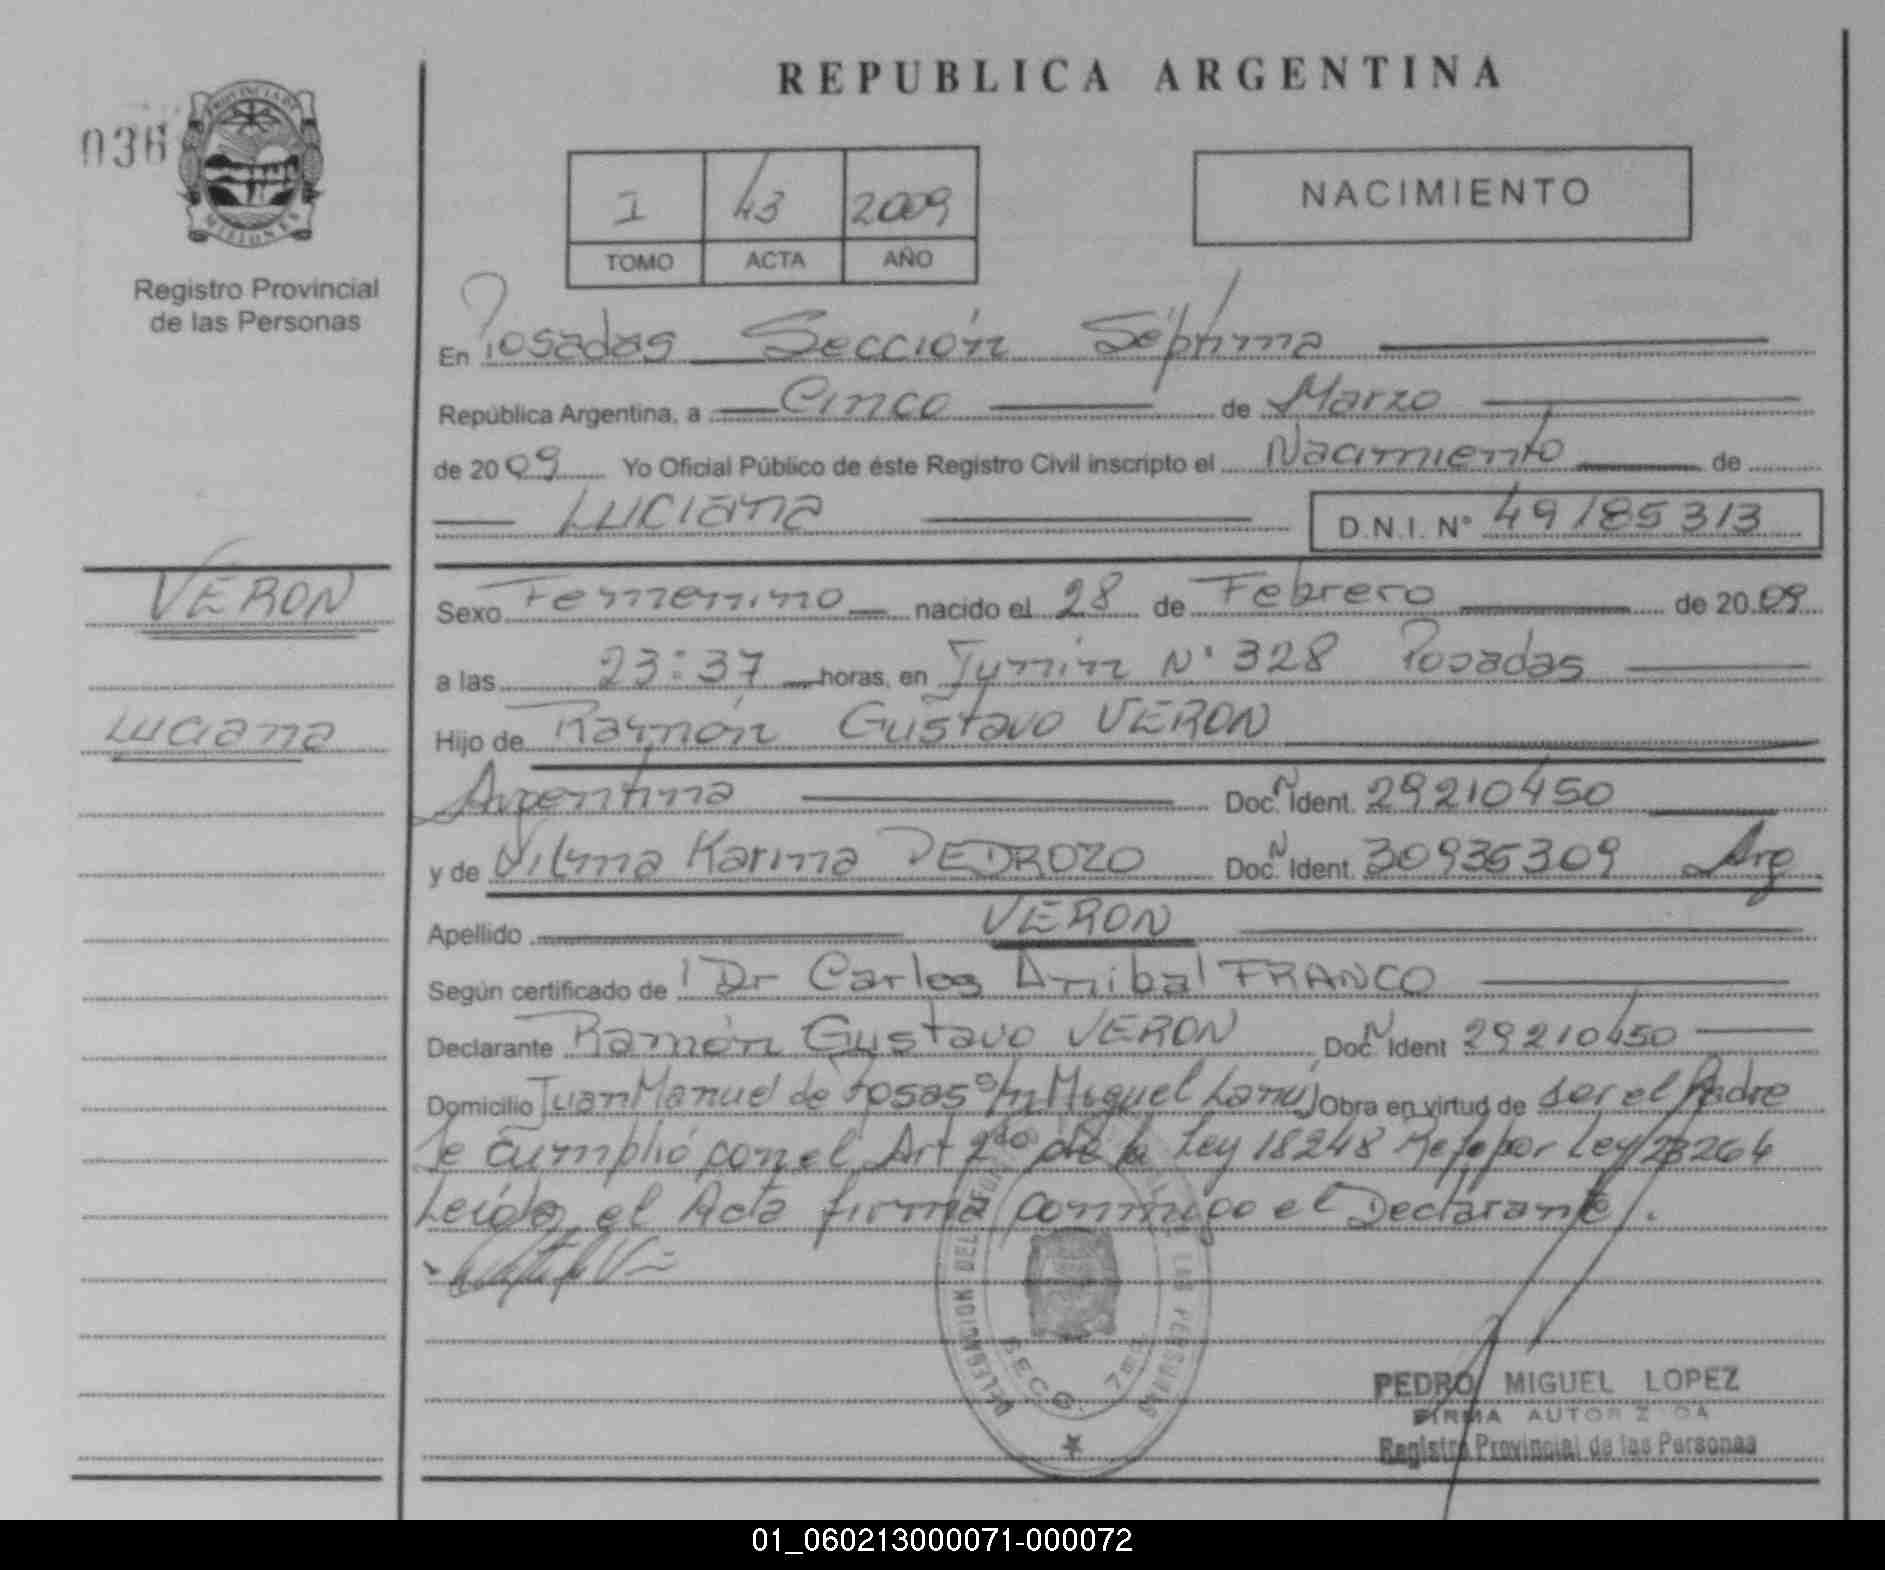 REPUBLICA ARGENTINA
036
PROVINCIA DE
MISIONES
Registro Provincial
de las Personas
I 43 2009
TOMO ACTA AÑO
NACIMIENTO
En Posadas Sección Séptima
República Argentina, a Cinco de Marzo
de 2009 Yo Oficial Público de éste Registro Civil inscripto el Nacimiento de
Luciana D.N.I. N° 49185313
VERON
Luciana
Sexo Femenino nacido el 28 de Febrero de 2009
a las 23:37 horas, en Junin N° 328 Posadas
Hijo de Ramón Gustavo VERON
Argentina Doc. N Ident. 29210450
y de Vilma Karina PEDROZO Doc. N Ident. 30935309 Arg
Apellido VERON
Según certificado de Dr Carlos Anibal FRANCO
Declarante Ramón Gustavo VERON Doc. N Ident 29210450
Domicilio Juan Manuel de Rosas s/n Miguel Lanús Obra en virtud de ser el Padre
Se cumplió con el Art 2do de la Ley 18248 Ref. por Ley 23264
Leída el Acta firma conmigo el Declarante.
DELEGACION DEL LAS PERSONAS
SECC. 7
PEDRO MIGUEL LOPEZ
FIRMA AUTORIZADA
Registro Provincial de las Personas
01_060213000071-000072